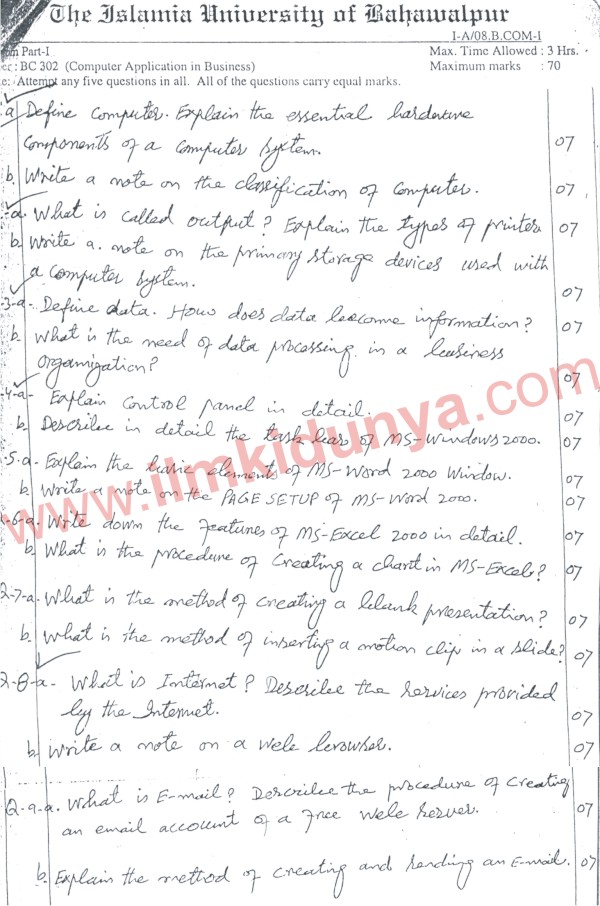 The Islamia University of Bahawalpur
I-A/08.B.COM-I
Part-I Max. Time Allowed : 3 Hrs.
: BC 302 (Computer Application in Business) Maximum marks : 70
Attempt any five questions in all. All of the questions carry equal marks.
a Define computer. Explain the essential hardware
Components of a Computer System. 07
b. Write a note on the classification of Computer. 07
a. What is called output? Explain the types of printer 07
b. Write a note on the primary storage devices used with
a computer System. 07
3-a- Define data. How does data become information? 07
b. What is the need of data processing in a business
Organization? 07
4-a- Explain Control panel in detail. 07
b. Describe in detail the task bar of MS-Windows 2000. 07
5-a- Explain the basic elements of MS-Word 2000 Window. 07
b. Write a note on the PAGE SETUP of MS-Word 2000. 07
6-a- Write down the features of MS-Excel 2000 in detail. 07
b. What is the procedure of Creating a chart in MS-Excel? 07
2-7-a. What is the method of creating a blank presentation? 07
b. What is the method of inserting a motion clip in a slide? 07
2-8-a- What is Internet? Describe the services provided
by the Internet. 07
b. Write a note on a web browser. 07
Q-9-a. What is E-mail? Describe the procedure of Creating
an email account of a free web server. 07
b. Explain the method of creating and sending an E-mail. 07
www.ilmkidunya.com